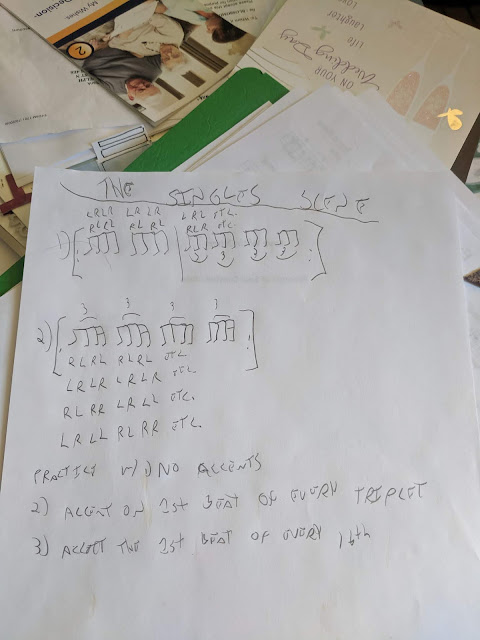 My Wishes,
Decision.
2
ON YOUR
Wedding Day
Life
Laughter
THE SINGLES SCENE
LRLR LRLR LRL ETC.
RLRL RLRL RLR ETC.
1)
3 3 3 3
3 3 3 3
2)
RLRL RLRL ETC
LRLR LRLR ETC.
RLRR LRLL ETC.
LRLL RLRR ETC.
PRACTICE w/ 1) NO ACCENTS
2) ACCENT ON 1st BEAT OF EVERY TRIPLET
3) ACCENT THE 1st BEAT OF EVERY 16th